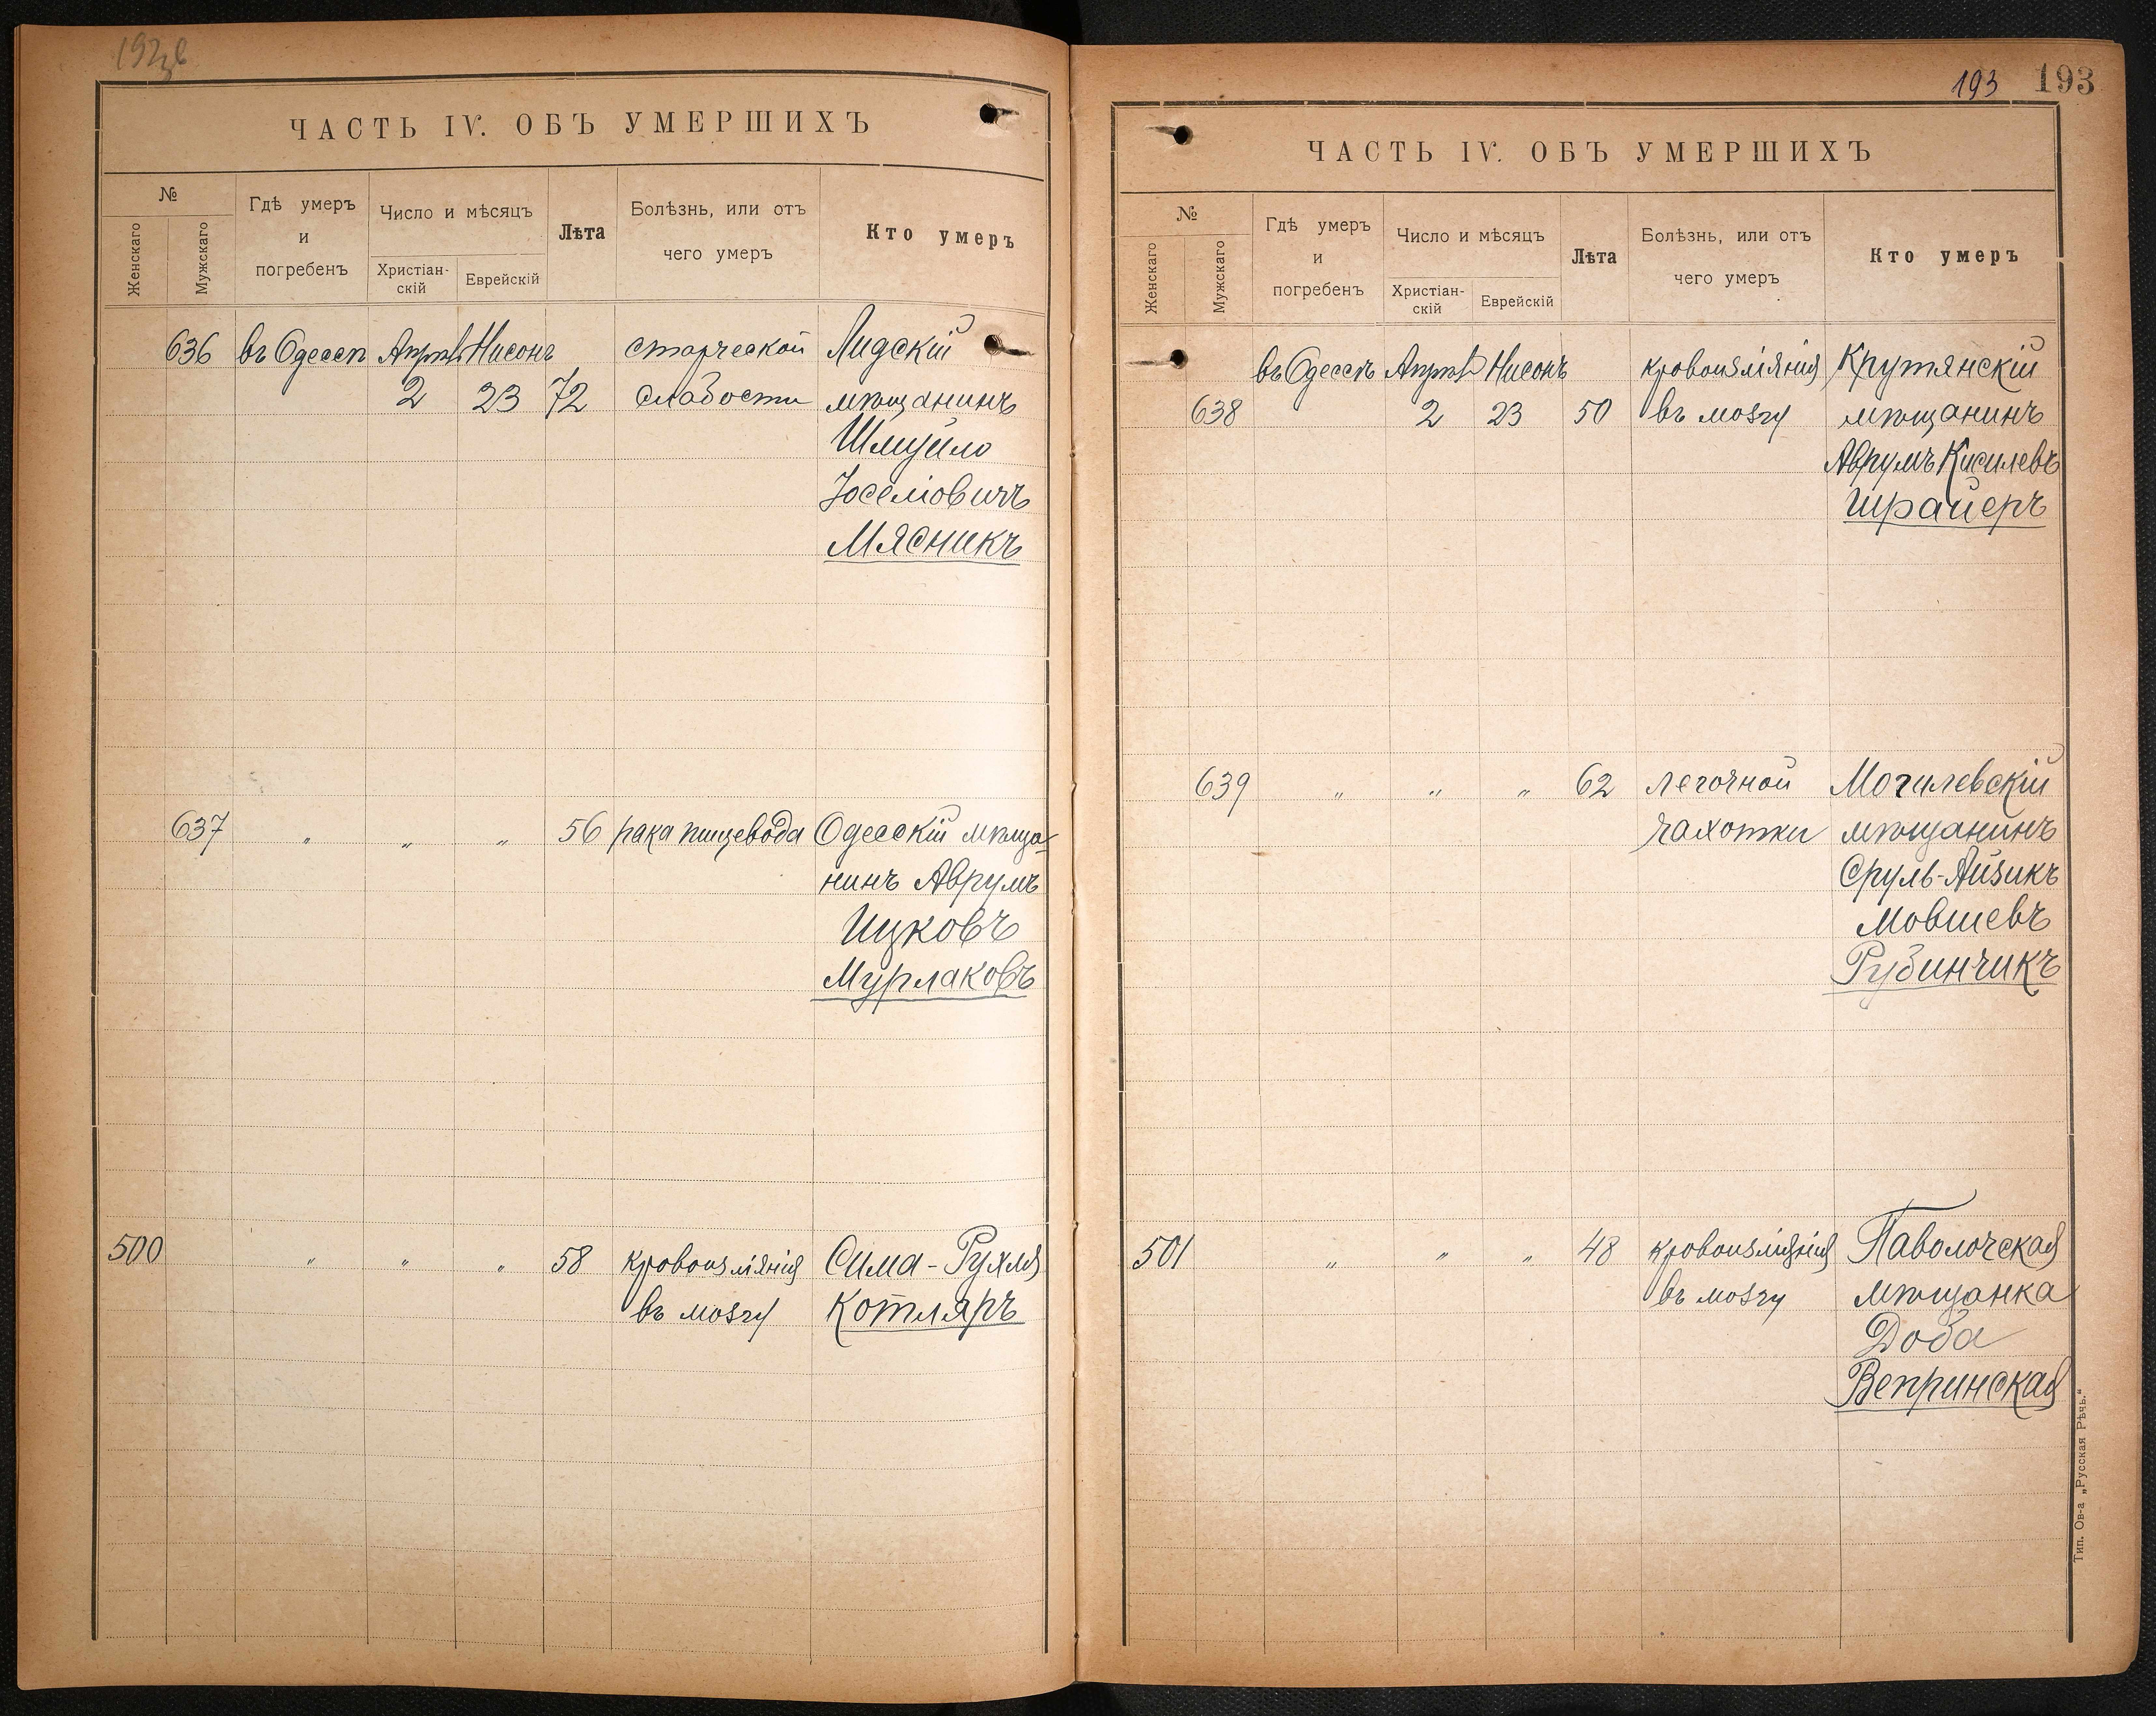 192 об
ЧАСТЬ IV. ОБЪ УМЕРШИХЪ
№
Женскаго
Мужскаго
Гдѣ умеръ
и
погребенъ
Число и мѣсяцъ
Христіан-
скій
Еврейскій
Лѣта
Болѣзнь, или отъ
чего умеръ
Кто умеръ
636 въ Одессѣ Апрѣль Нисонъ старческой Лидскій
2 23 72 слабости мѣщанинъ
Шмуйло
Іоселіовичъ
Мясникъ
637 „ „ „ 56 рака пищевода Одесскій мѣща-
нинъ Аврумъ
Ицковъ
Мурлаковъ
500 „ „ „ 58 кровоизліянія Сима-Рухля
въ мозгу Котляръ
193 193
ЧАСТЬ IV. ОБЪ УМЕРШИХЪ
№
Женскаго
Мужскаго
Гдѣ умеръ
и
погребенъ
Число и мѣсяцъ
Христіан-
скій
Еврейскій
Лѣта
Болѣзнь, или отъ
чего умеръ
Кто умеръ
въ Одессѣ Апрѣль Нисонъ кровоизліянія Крутянскій
638 2 23 50 въ мозгу мѣщанинъ
Аврумъ Кисилевъ
Шрайеръ
639 „ „ „ 62 легочной Могилевскій
чахотки мѣщанинъ
Сруль-Айзикъ
Мовшевъ
Рубинчикъ
501 „ „ „ 48 кровоизліянія Паволочская
въ мозгу мѣщанка
Доба
Вепринская
Тип. Ов-а „Русская Рѣчь."